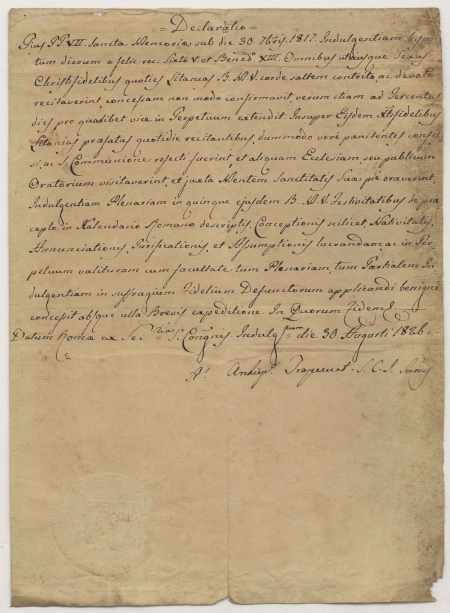 = Declaratio =
Pius PP. VII. Sancta Memoria sub die 30 7bris. 1817. Indulgentiam
tum dierum a felic rec: Sixto V. et Bened: XIII. Omnibus utriusque Sexus
Christifidelibus quoties Litanias B. M. V. corde saltem contrito, ac devote
recitaverint, concessam non modo confirmavit, verum etiam ad Tercentos
dies pro qualibet vice in Perpetuum extendit. Insuper Eisdem Xtifidelibus
Litanias præfatas quotidie recitantibus, dummodo vere pænitentes confes
si, ac S. Communione refecti fuerint, et aliquam Ecclesiam seu publicum
Oratorium visitaverint, et juxta Mentem Sanctitatis Suæ pie oraverint,
Indulgentiam Plenariam in quinque ejusdem B. M. V. Festivitatibus de præ
cepto in Kalendario Romano descriptis, Conceptionis scilicet, Nativitatis,
Annunciationis, Purificationis, et Assumptionis lucrandam, ac in Per
petuum valituram cum facultate tum Plenariam, tum Partialem In
dulgentiam in suffragium Fidelium Defunctorum applicandi benigne
concessit absque ulla Brevis expeditione. In Quorum Fidem &
Datum Romæ ex S. Congnis Indulg die 30 Augusti 1826.